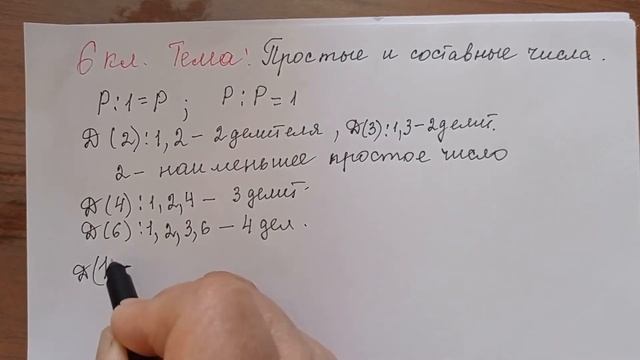 6 кл. Тема: Простые и составные числа.
P:1=P ; P:P=1
Д(2):1,2 – 2 делителя, Д(3):1,3 – 2 делит.
2 – наименьшее простое число
Д(4):1,2,4 – 3 делит.
Д(6):1,2,3,6 – 4 дел.
Д(1